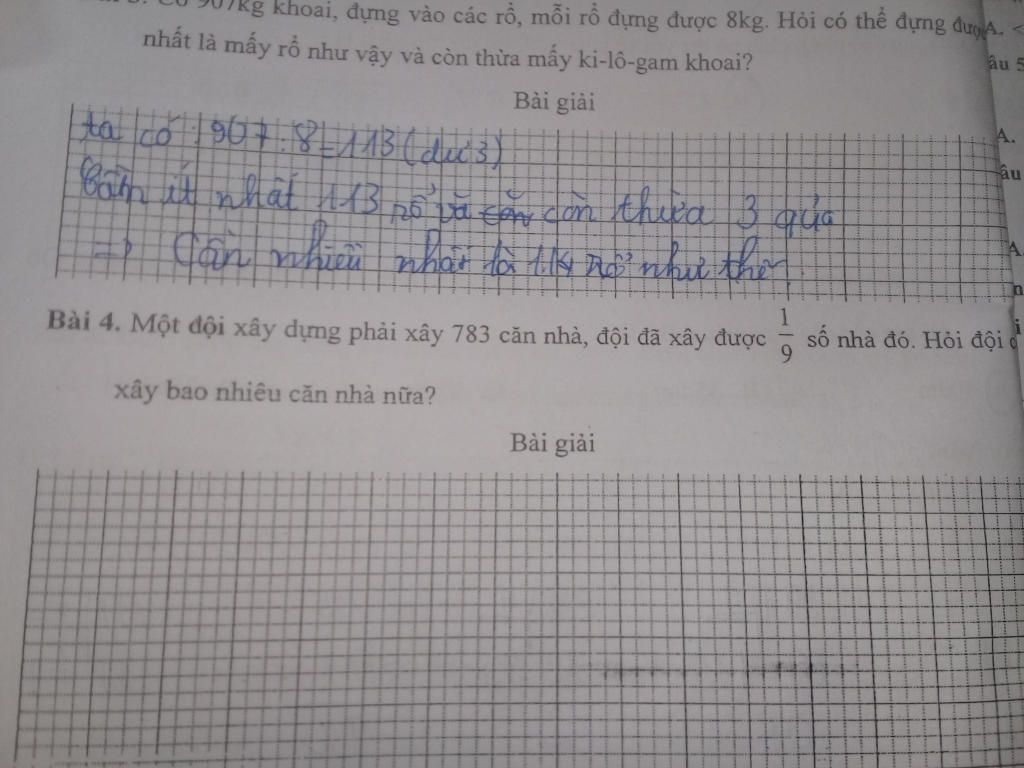 907kg khoai, đựng vào các rổ, mỗi rổ đựng được 8kg. Hỏi có thể đựng được
nhất là mấy rổ như vậy và còn thừa mấy ki-lô-gam khoai?
Bài giải
ta có : 907 : 8 = 113 (dư 3)
Cần ít nhất 113 rổ và còn thừa 3 qủa
=> Cần nhiều nhất là rổ như thế.
Bài 4. Một đội xây dựng phải xây 783 căn nhà, đội đã xây được 1/9 số nhà đó. Hỏi đội
xây bao nhiêu căn nhà nữa?
Bài giải
A.
âu 5
A.
âu
A.